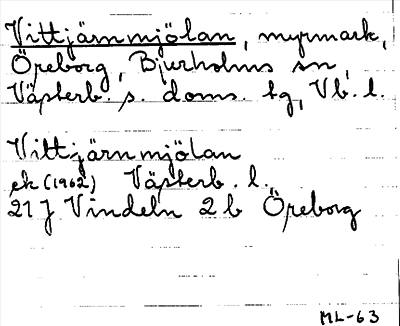 Vittjärnmjölan, myrmark,
Öreborg, Bjurholms sn,
Västerb. s. doms. tg, Vb. l.
Vittjärnmjölan
ek (1962) Västerb. l.
21 J Vindeln 2 b Öreborg
ML-63